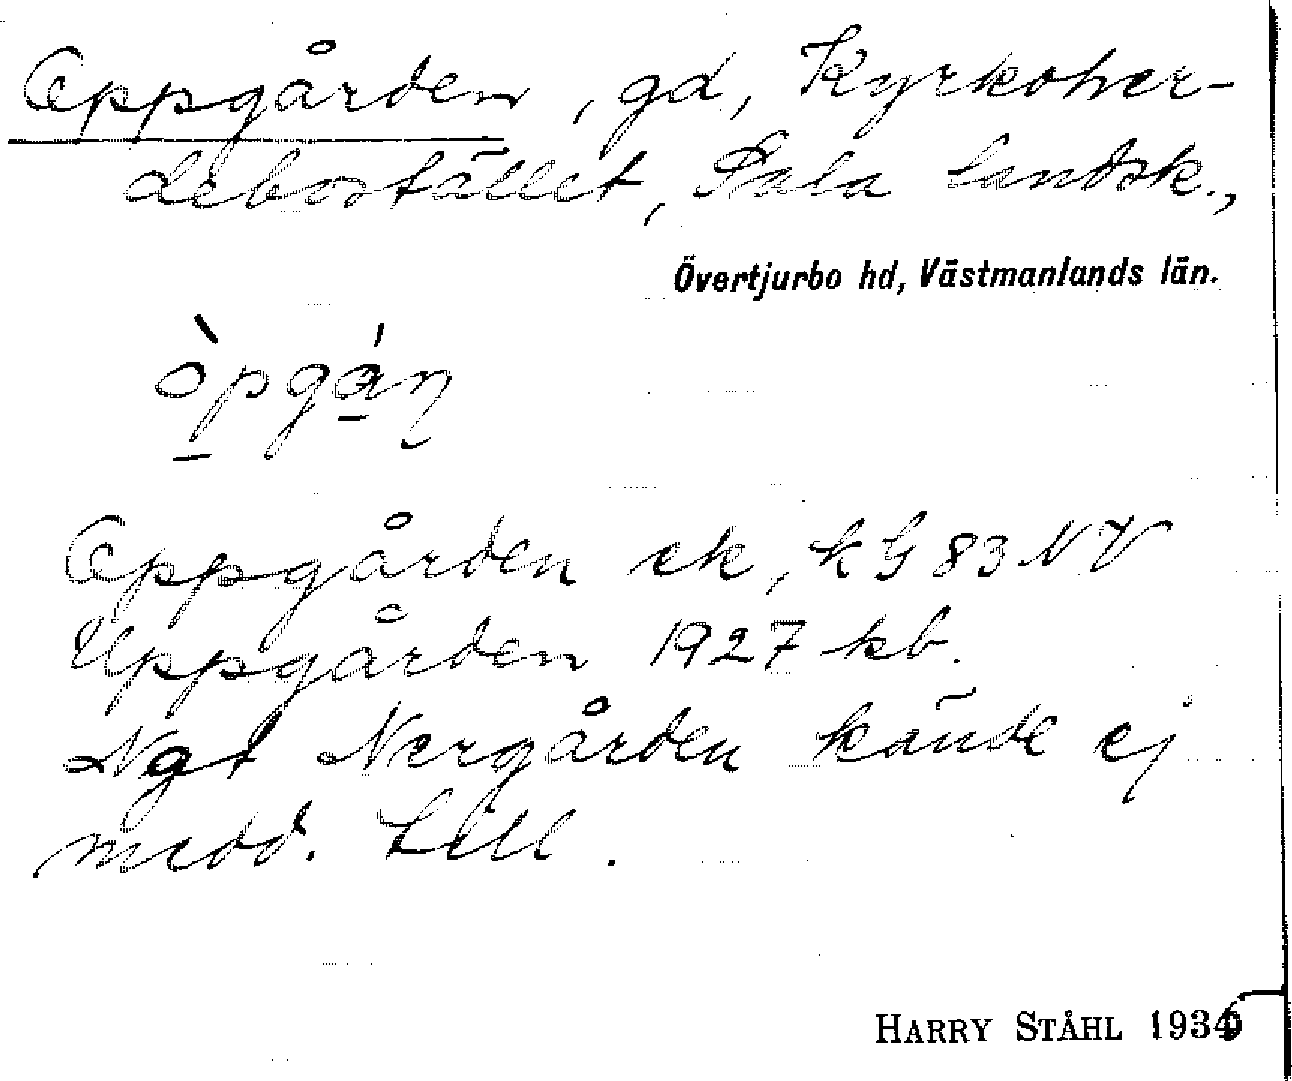 Oppgården, gd, Kyrkoher-
debostället, Sala landsk.,
Övertjurbo hd, Västmanlands län.
òpgán
Oppgården ek, kG 83 NV
Uppgården 1927 kb.
Ngt Nergården kände ej
medd. till.
HARRY STÅHL 1935